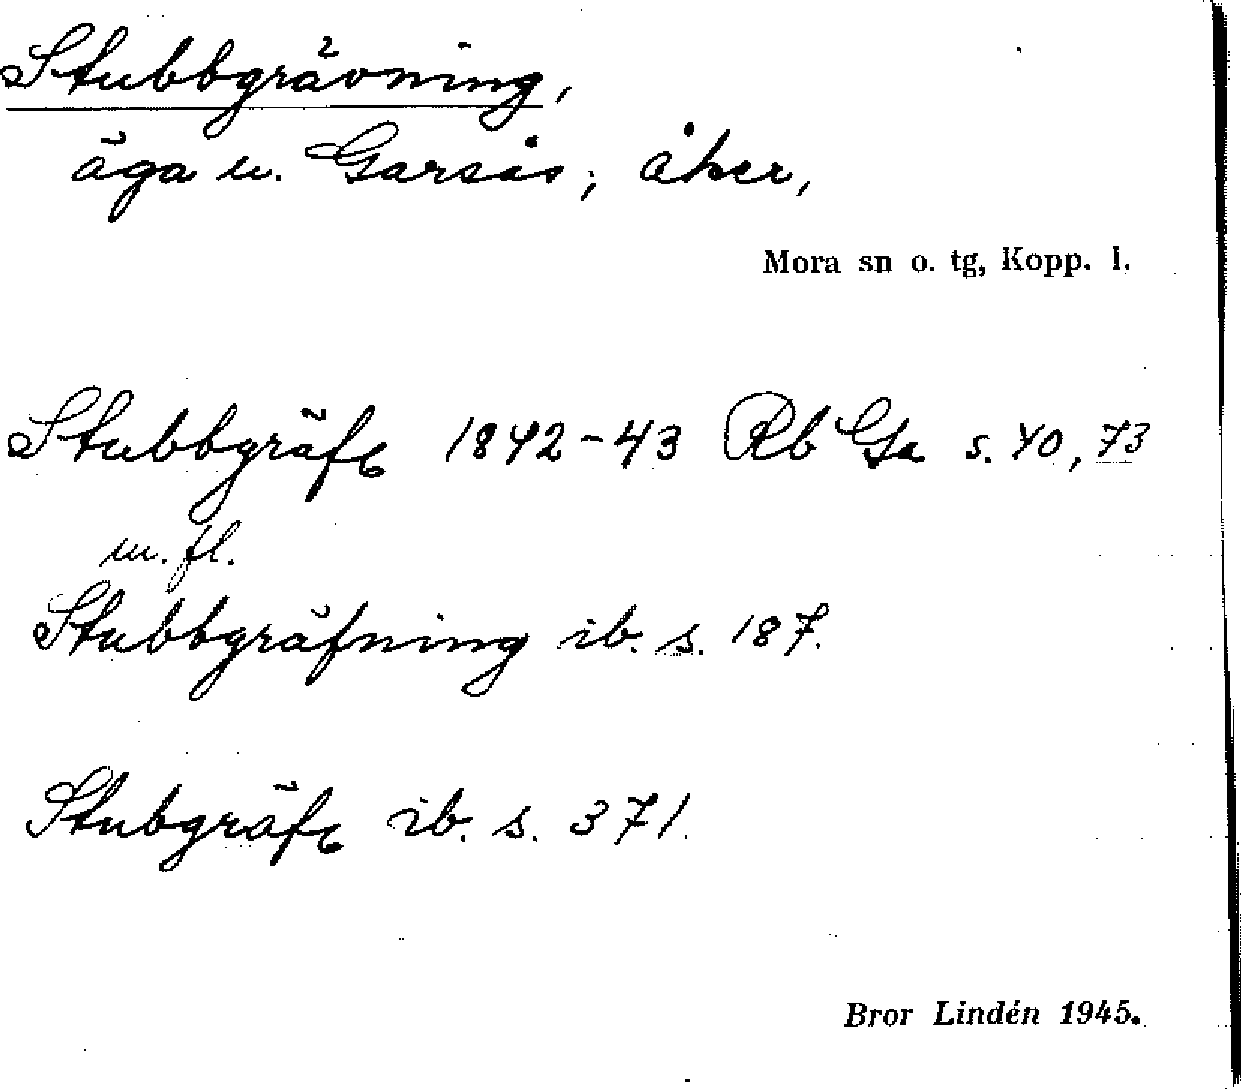 Stubbgrävning,
äga u. Garsås; åker,
Mora sn o. tg, Kopp. l.
Stubbgräfn 1842-43 Rb Ga s. 40, 73
m. fl.
Stubbgräfning ib. s. 187.
Stubgräfn ib. s. 371.
Bror Lindén 1945.